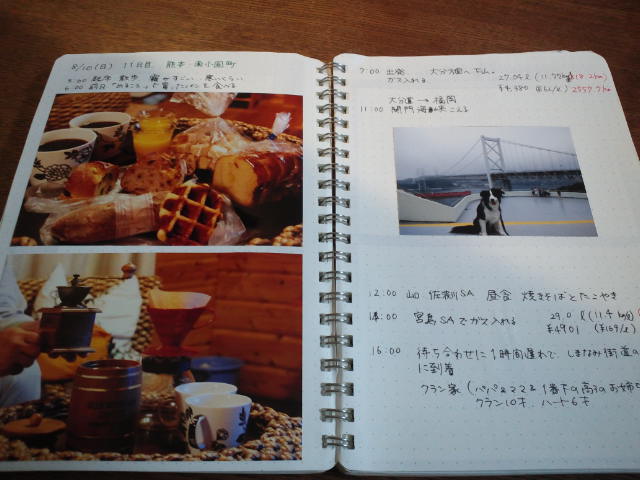 8/10(日) 11日目 熊本・南小国町
5:00 起床 散歩 霧がすごい 寒いくらい
6:00 前日「めるころ」で買ったパンを食べる
7:00 出発 大分道へ下山。
ガス入れる 27.04ℓ
¥4,380 2557.7km
大分道 → 福岡
11:00 関門海峡こえる
12:00 山口 佐波川SA 昼食 焼きそばとたこやき
14:00 宮島SAでガス入れる 29.0ℓ (11.4
¥4901 (¥169/ℓ)
16:00 待ち合わせに1時間遅れで、しまなみ街道の
に到着
クラン家 (パパ&ママ& 1番下の高3のお姉
クラン10才、ハート6才